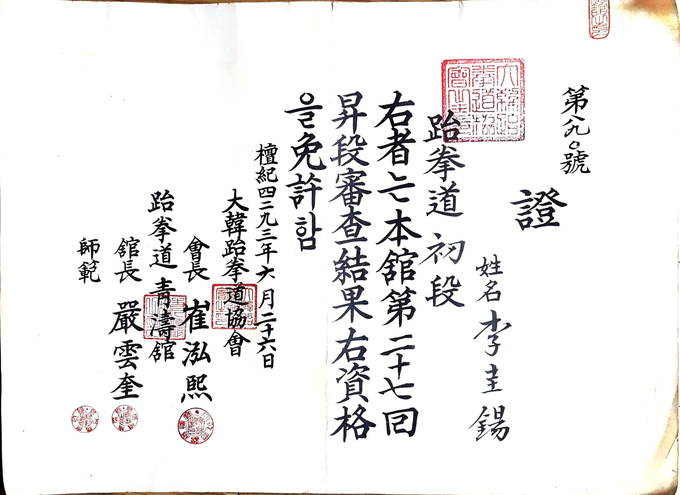 第八九〇號
證
姓名 李圭錫
跆拳道 初段
右者는本舘第二十七回
昇段審查結果右資格
을免許함
檀紀四二九三年六月二十六日
大韓跆拳道協會
會長 崔泓熙
跆拳道靑濤舘
舘長 嚴雲奎
師範